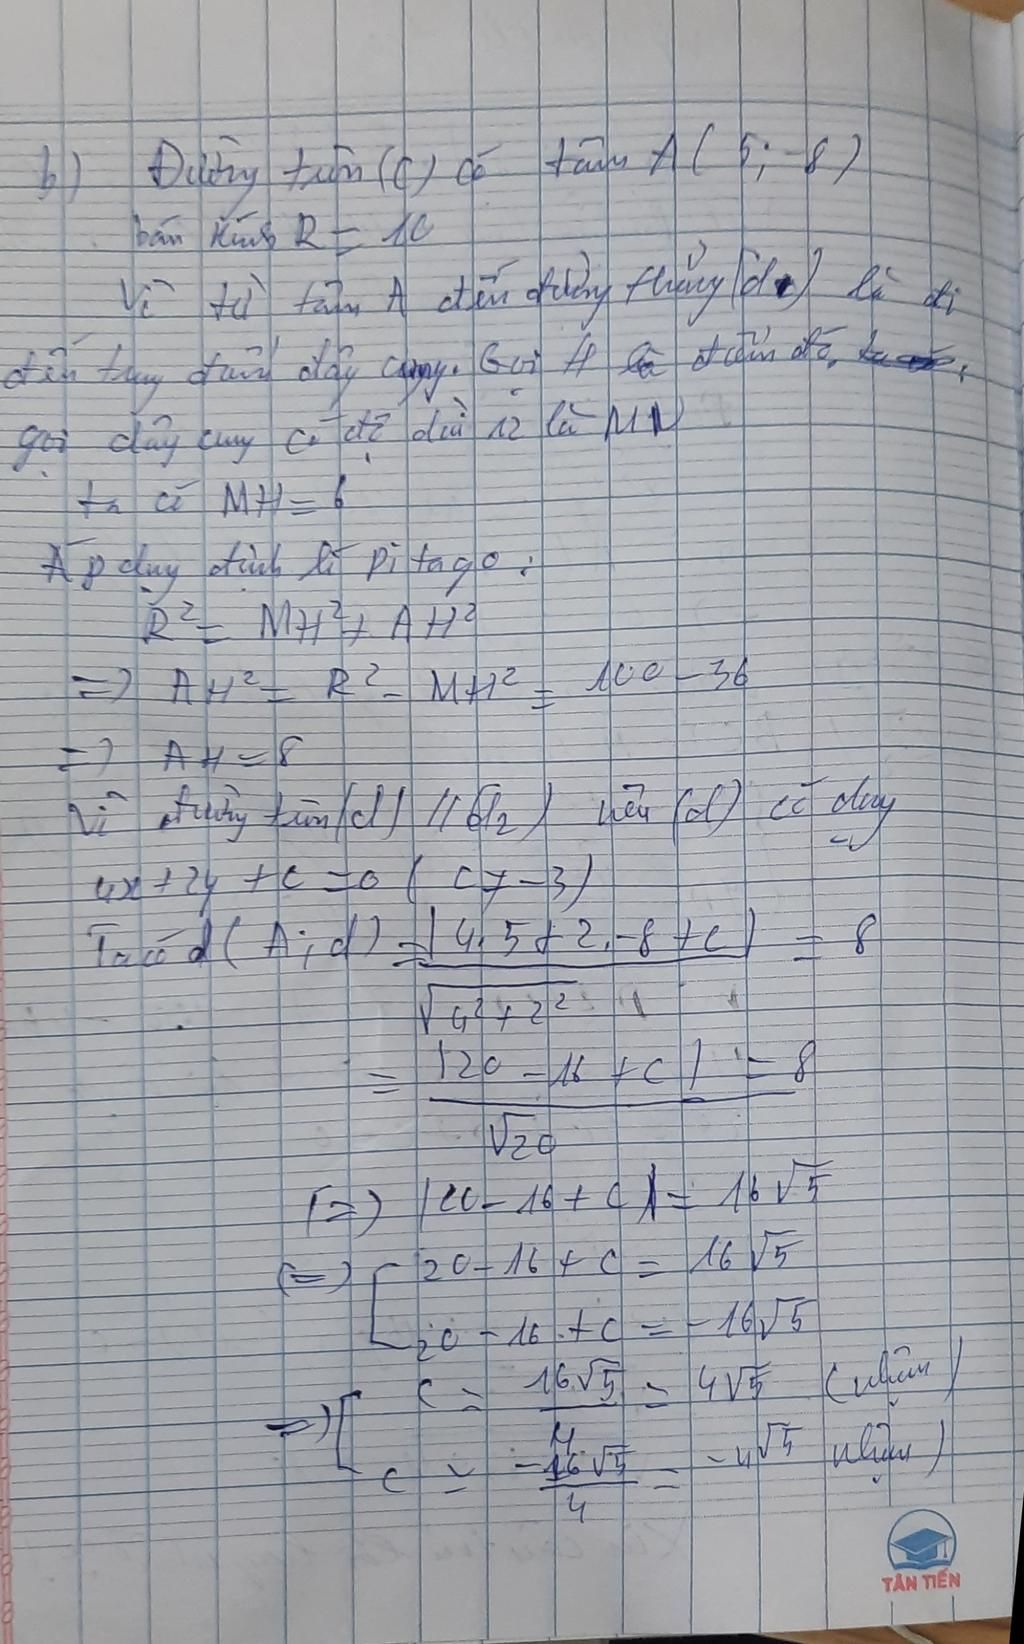 b) Đường tròn (C) có tâm A(5; -8)
bán kính R = 10
Vì từ tâm A đến đường thẳng (d) là đi
đến trung điểm dây cung. Gọi H là điểm đó,
gọi dây cung có độ dài 12 là MN
ta có MH = 6
Áp dụng định lí Pitago:
R² = MH² + AH²
=> AH² = R² - MH² = 100 - 36
=> AH = 8
Vì đường tròn (d) // (d₂) nên (d) có dạng
4x + 2y + c = 0 ( c ≠ -3)
Ta có d(A; d) = |4.5 + 2.-8 + c| = 8
√4² + 2²
= |20 - 16 + c| = 8
√20
(=) |20 - 16 + c| = 16√5
(=) [ 20 - 16 + c = 16√5
20 - 16 + c = -16√5
=> [ c = 16√5 = 4√5 (nhận)
4
c = -16√5 = -4√5 nhận)
4
TÂN TIẾN